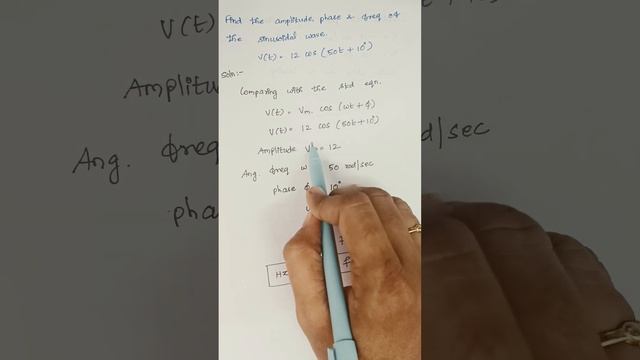 Find the amplitude, phase & freq of
the sinusoidal wave.
V(t) = 12 cos (50t + 10°)
Soln:-
Comparing with the std eqn.
V(t) = Vm cos (ωt + φ)
V(t) = 12 cos (50t + 10°)
Amplitude V = 12
Ang. freq ω 50 rad/sec
phase φ 10°
Hz f